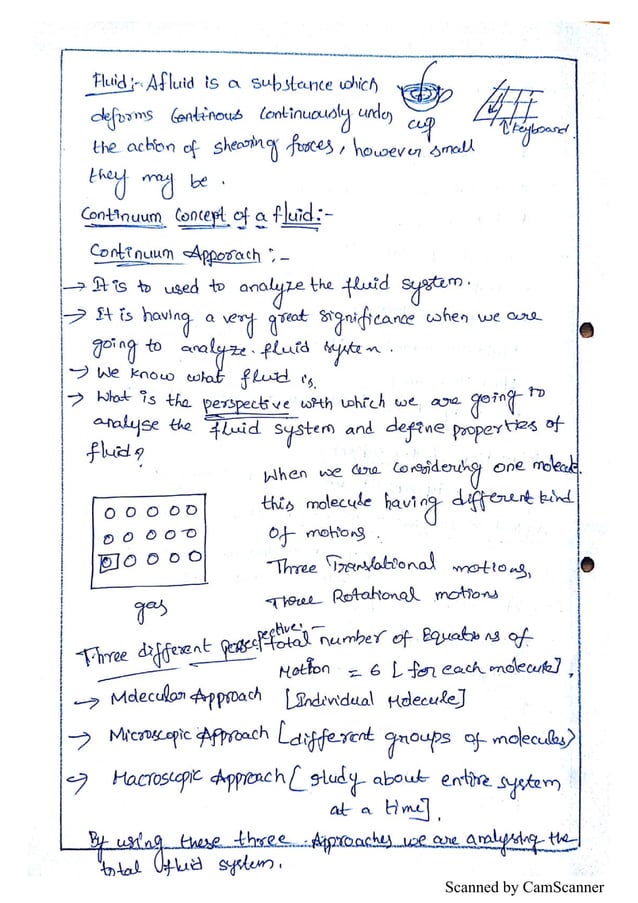 Fluid :- A fluid is a substance which
deforms Continous continuously under
cup
↑ Keyboard
the action of shearing forces, however small
they may be.
Continuum Concept of a fluid :-
Continuum Apporach :-
→ It is to used to analyze the fluid system.
→ It is having a very great significance when we are
going to analyze fluid system.
→ We know what fluid is,
→ What is the perspective with which we are going to
analyse the fluid system and define properties of
fluid?
When we are considering one molecule.
this molecule having different kind
of motions.
Three Translational motions,
Three Rotational motions
gas
Three different perspective :-
total number of Equations of
Motion = 6 [for each molecule],
→ Molecular Approach [Individual Molecule]
→ Microscopic Approach [different groups of molecules)
→ Macroscopic Approach [study about entire system
at a time].
By using these three Approaches we are analysing the
total fluid system.
Scanned by CamScanner